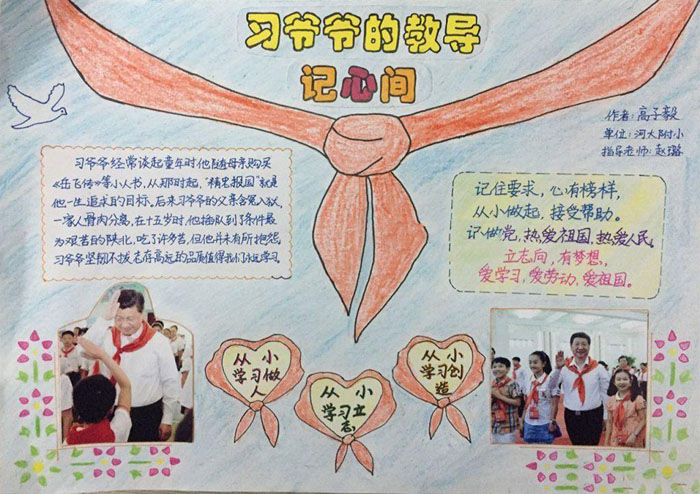 习爷爷的教导
记心间
作者:高子毅
单位:河大附小
指导老师:赵璐
习爷爷经常谈起童年时他随母亲购买
《岳飞传》等小人书,从那时起,“精忠报国”就是
他一生追求的目标,后来习爷爷的父亲含冤入狱,
一家人骨肉分离,在十五岁时,他插队到了条件最
为艰苦的陕北,吃了许多苦,但他并未有所抱怨,
习爷爷坚韧不拔,志存高远的品质值得我们永远学习
记住要求,心有榜样,
从小做起,接受帮助。
记做党,热爱祖国,热爱人民,
立志向,有梦想,
爱学习,爱劳动,爱祖国。
从小
学习做
人
从小
学习立
志
从小
学习创
造